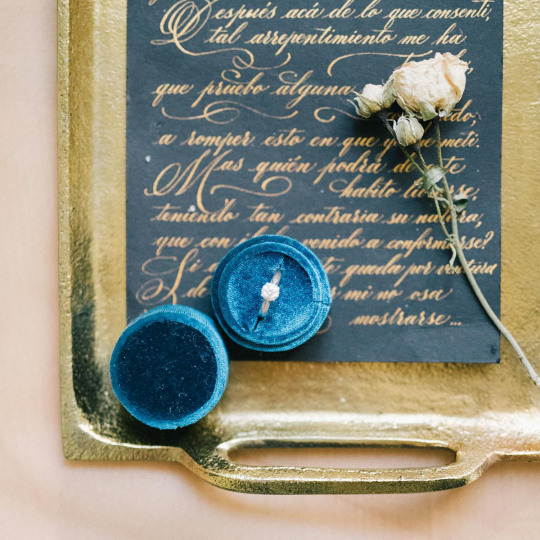 Después acá de lo que consentí,
tal arrepentimiento me ha
que pruebo alguna
a romper esto en que yo me metí.
Mas quién podrá de este
habito librarse,
teniendo tan contraria su natura,
que con él venido a conformarse?
queda por ventura
mi no osa
mostrarse...